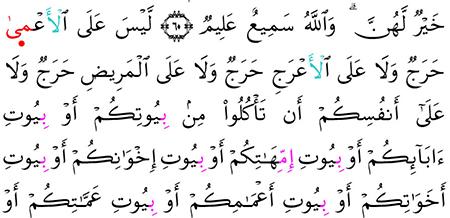 خَيْرٌ لَّهُنَّ ۗ وَاللَّهُ سَمِيعٌ عَلِيمٌ ﴿٦٠﴾ لَّيْسَ عَلَى الْأَعْمَىٰ
حَرَجٌ وَلَا عَلَى الْأَعْرَجِ حَرَجٌ وَلَا عَلَى الْمَرِيضِ حَرَجٌ وَلَا
عَلَىٰٓ أَنفُسِكُمْ أَن تَأْكُلُوا۟ مِنۢ بِيُوتِكُمْ أَوْ بِيُوتِ
ءَابَآئِكُمْ أَوْ بِيُوتِ إِمِّهَٰتِكُمْ أَوْ بِيُوتِ إِخْوَٰنِكُمْ أَوْ بِيُوتِ
أَخَوَٰتِكُمْ أَوْ بِيُوتِ أَعْمَٰمِكُمْ أَوْ بِيُوتِ عَمَّٰتِكُمْ أَوْ